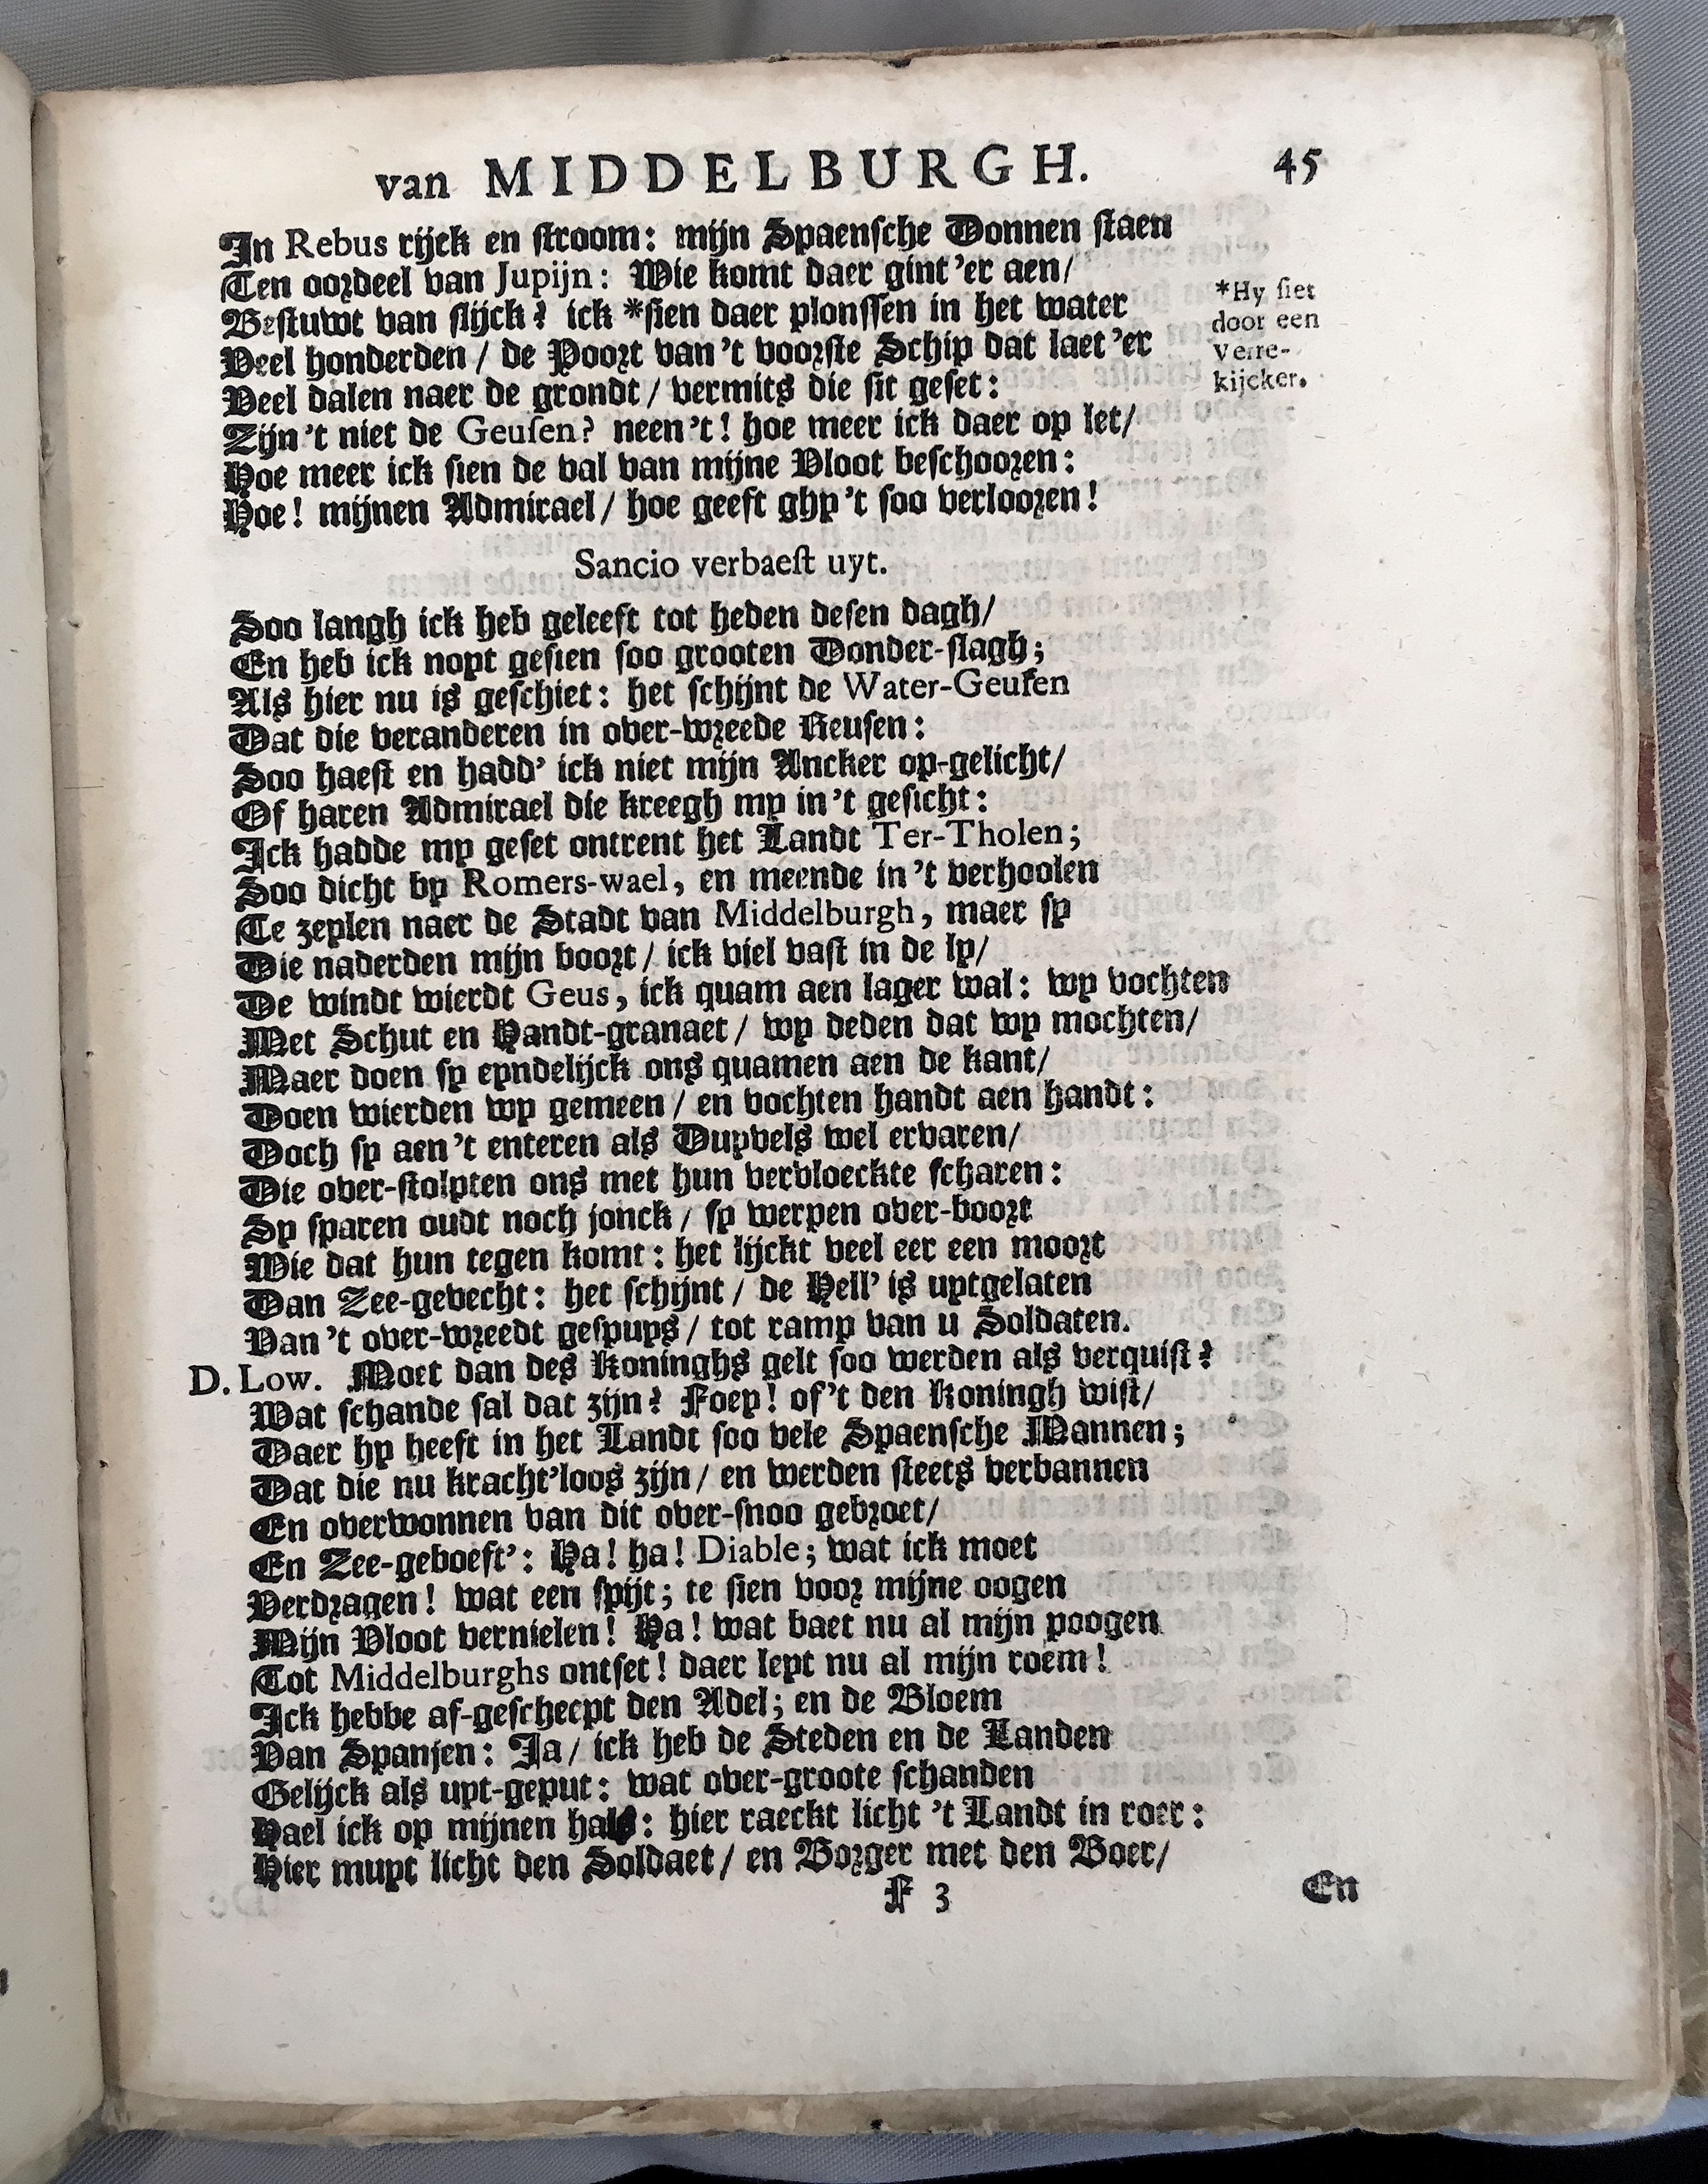 van MIDDELBURGH. 45
In Rebus rijck en stroom: mijn Spaensche Donnen staen
Ten oordeel van Jupijn: Wie komt daer gint'er aen/
Bestuwt van slijck? ick *sien daer plonssen in het water
Veel honderden / de Poort van 't voorste Schip dat laet 'er
Veel dalen naer de grondt / vermits die sit geset:
Zijn 't niet de Geusen? neen 't! hoe meer ick daer op let/
Hoe meer ick sien de val van mijne Vloot beschooren:
Hoe! mijnen Admirael / hoe geeft ghy 't soo verlooren!
*Hy siet
door een
Verre-
kijcker.
Sancio verbaest uyt.
Soo langh ick heb geleeft tot heden desen dagh/
En heb ick noyt gesien soo grooten Donder-slagh;
Als hier nu is geschiet: het schijnt de Water-Geusen
Dat die veranderen in over-wreede Reusen:
Soo haest en hadd' ick niet mijn Ancker op-gelicht/
Of haren Admirael die kreegh my in 't gesicht:
Ick hadde my geset ontrent het Landt Ter-Tholen;
Soo dicht by Romers-wael, en meende in 't verhoolen
Te zeylen naer de Stadt van Middelburgh, maer sy
Die naderden mijn boort / ick viel vast in de ly/
De windt wierdt Geus, ick quam aen lager wal: wy vochten
Met Schut en Handt-granaet / wy deden dat wy mochten/
Maer doen sy eyndelijck ons quamen aen de kant/
Doen wierden wy gemeen / en vochten handt aen handt:
Doch sy aen 't enteren als Duyvels wel ervaren/
Die over-stolpten ons met hun vervloeckte scharen:
Sy sparen oudt noch jonck / sy werpen over-boort
Wie dat hun tegen komt: het lijckt veel eer een moort
Dan Zee-gevecht: het schijnt / de Hell' is uytgelaten
Van 't over-wreedt gespuys / tot ramp van u Soldaten.
D. Low. Moet dan des Koninghs gelt soo werden als verquist?
Wat schande sal dat zijn? Foey! of 't den Koningh wist/
Daer hy heeft in het Landt soo vele Spaensche Mannen;
Dat die nu kracht'loos zijn / en werden steets verbannen
En overwonnen van dit over-snoo gebroet/
En Zee-geboeft': Ha! ha! Diable; wat ick moet
Verdragen! wat een spijt; te sien voor mijne oogen
Mijn Vloot vernielen! Ha! wat baet nu al mijn poogen
Tot Middelburghs ontset! daer leyt nu al mijn roem!
Ick hebbe af-gescheept den Adel; en de Bloem
Van Spanjen: Ja / ick heb de Steden en de Landen
Gelijck als uyt-geput: wat over-groote schanden
Hael ick op mijnen hals: hier raeckt licht 't Landt in roer:
Hier muyt licht den Soldaet / en Borger met den Boer/
F 3 En